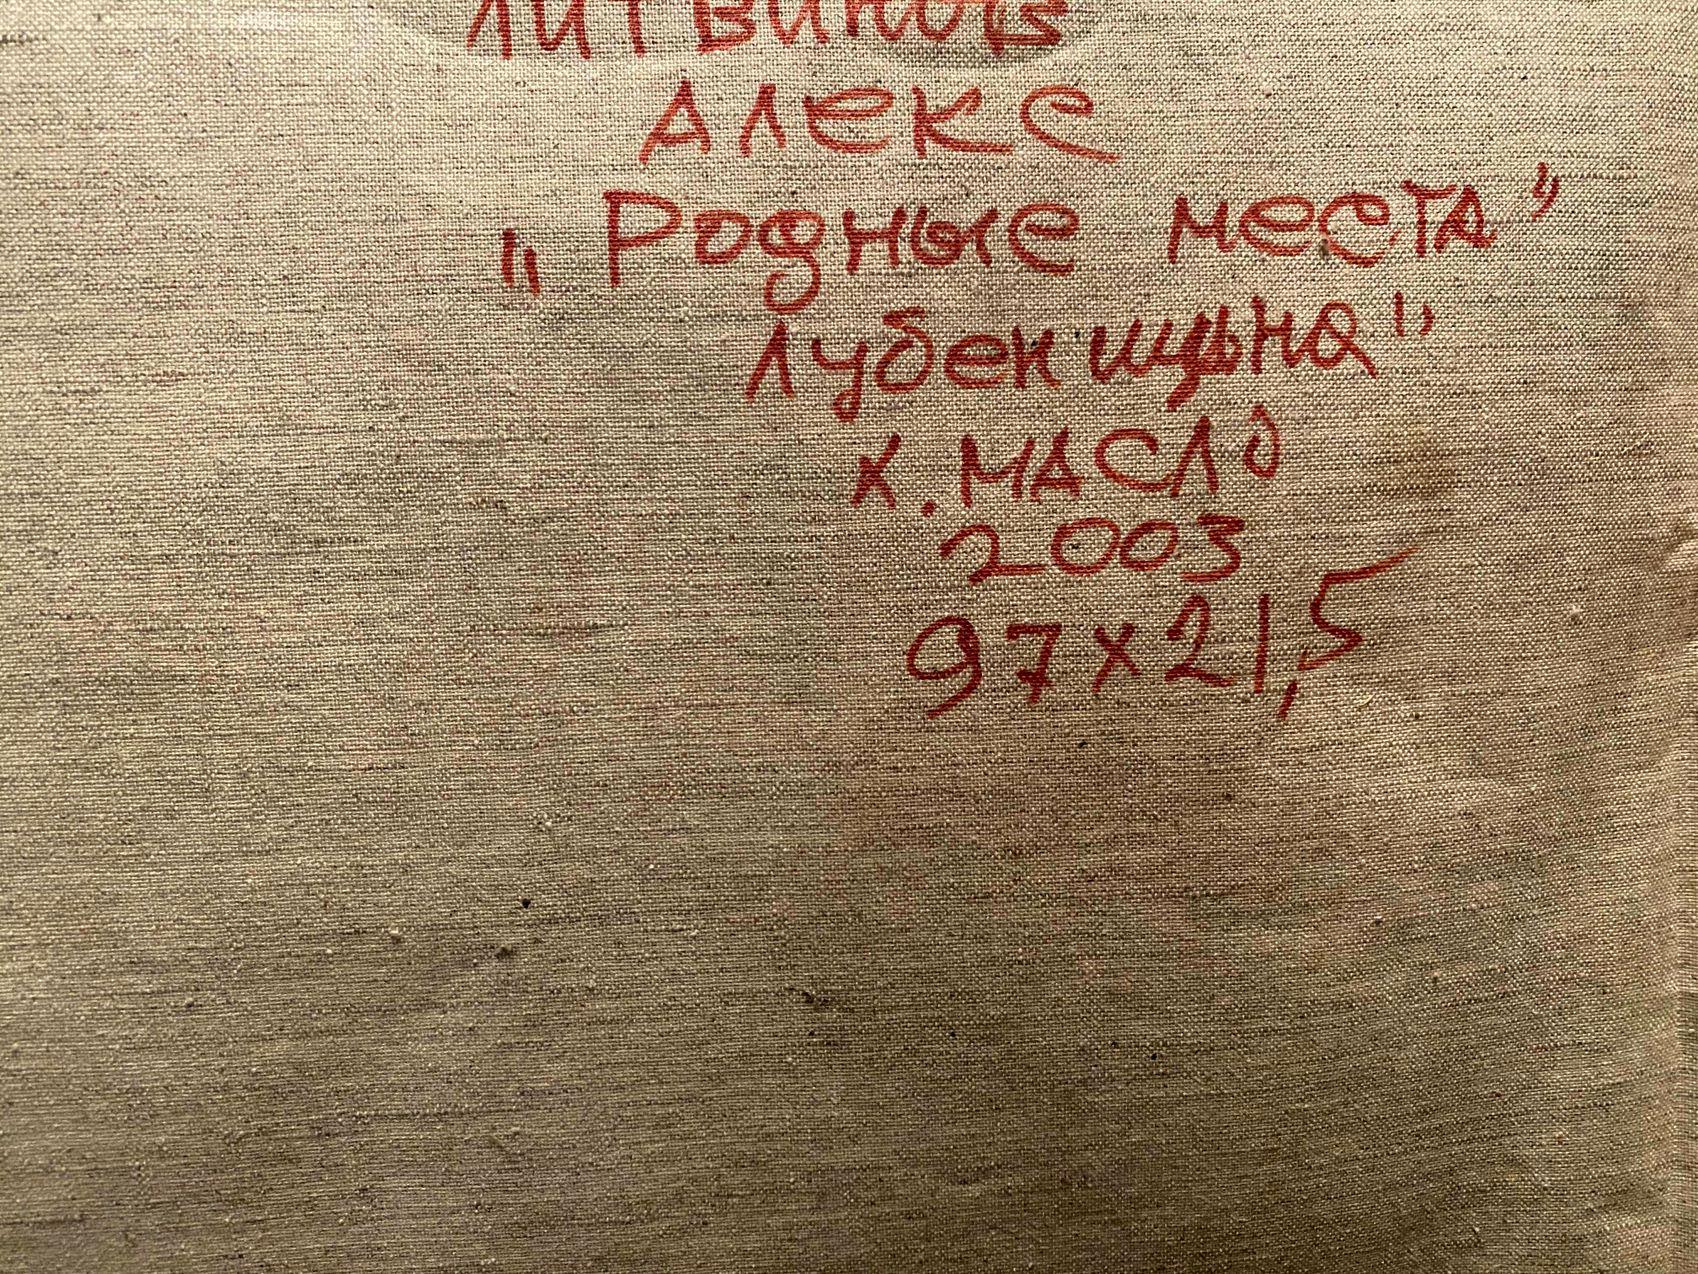 ЛИТВИНОВ
АЛЕКС
„Родные места"
Лубенщына"
Х. МАСЛО
2003
97×21,5